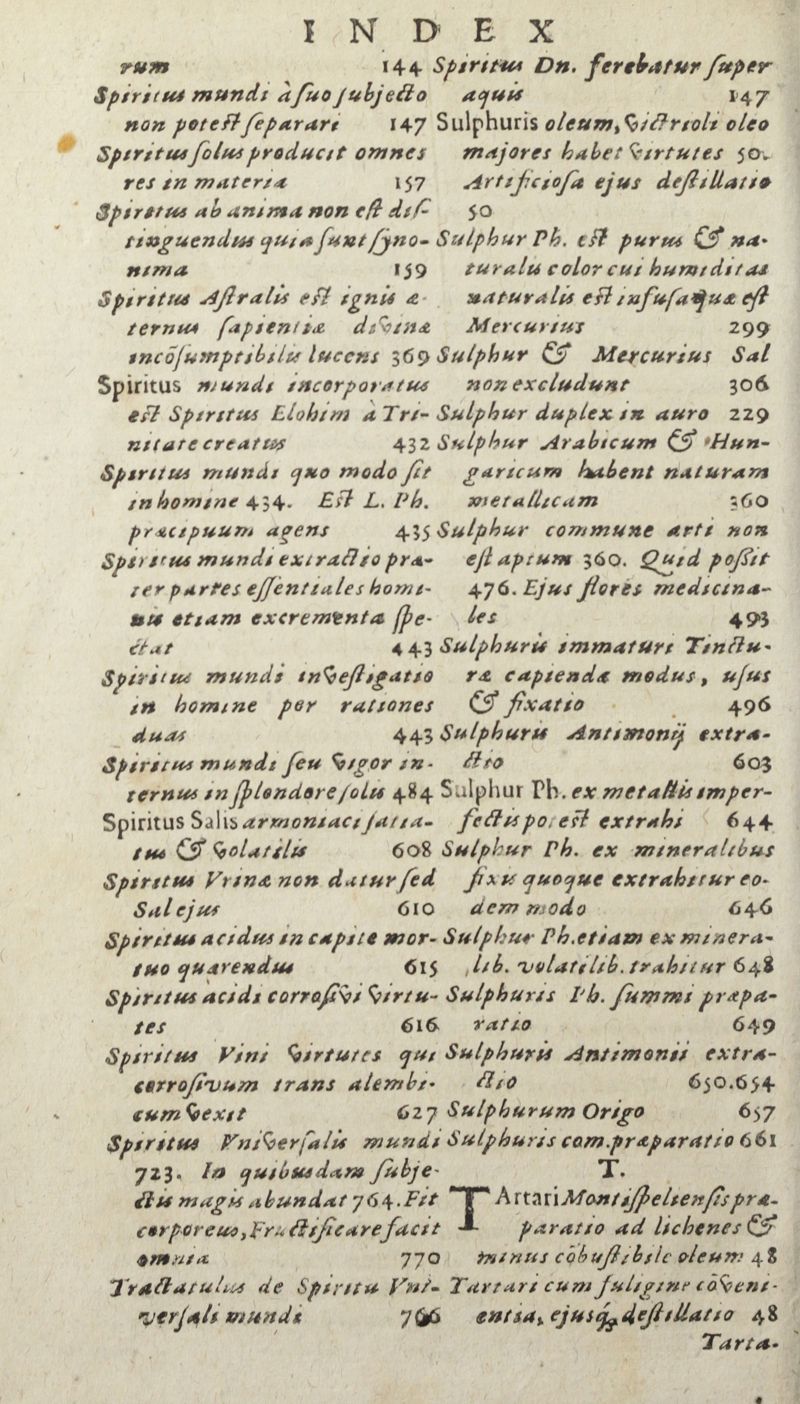 INDEX
rum 144
Spiritus mundi à suo subjecto
non potest separari 147
Spiritus solus producit omnes
res in materia 157
Spiritus ab anima non est dis-
tinguendus quia sunt syno-
nima 159
Spiritus Astralis est ignis æ-
ternus sapientiæ divinæ
incõsumptibilis lucens 369
Spiritus mundi incorporatus
est Spiritus Elohim à Tri-
nitate creatus 432
Spiritus mundi quo modo fit
in homine 434. Est L. Ph.
præcipuum agens 435
Spiritus mundi extractio præ-
ter partes essentiales homi-
nis etiam excrementa spe-
ctat 443
Spiritus mundi investigatio
in homine per rationes
duas 443
Spiritus mundi seu vigor in-
ternus in splendore solis 484
Spiritus Salis armoniaci satia-
tus & volatilis 608
Spiritus Vrinæ non datur sed
Sal ejus 610
Spiritus acidus in capite mor-
tuo quærendus 615
Spiritus acidi corrosivi virtu-
tes 616
Spiritus Vini virtutes qui
corrosivum trans alembi-
cum vexit 627
Spiritus Vniversalis mundi
723. In quibusdam subje-
ctis magis abundat 764. Fit
corporeus, Fructificare facit
omnia 770
Tractatulus de Spiritu Vni-
versali mundi 766
Spiritus Dn. ferebatur super
aquis 147
Sulphuris oleum, victrioli oleo
majores habet virtutes 50.
Artificiosa ejus destillatio
50
Sulphur Ph. est purus & na-
turalis color cui humiditas
naturalis est infusa quæ est
Mercurius 299
Sulphur & Mercurius Sal
non excludunt 306
Sulphur duplex in auro 229
Sulphur Arabicum & Hun-
garicum habent naturam
metallicam 360
Sulphur commune arti non
est aptum 360. Quid possit
476. Ejus flores medicina-
les 493
Sulphuris immaturi Tinctu-
ræ capiendæ modus, usus
& fixatio 496
Sulphuris Antimonij extra-
ctio 603
Sulphur Ph. ex metallis imper-
fectis potest extrahi 644
Sulphur Ph. ex mineralibus
fixis quoque extrahitur eo-
dem modo 646
Sulphur Ph. etiam ex minera-
lib. volatilib. trahitur 648
Sulphuris Ph. summi præpa-
ratio 649
Sulphuris Antimonii extra-
ctio 650.654
Sulphurum Origo 657
Sulphuris com. præparatio 661
T.
TArtari Montisspeliensis præ-
paratio ad lichenes &
minus cõbustibile oleum 48
Tartari cum fuligine cõveni-
entia, ejusq; destillatio 48
Tarta-